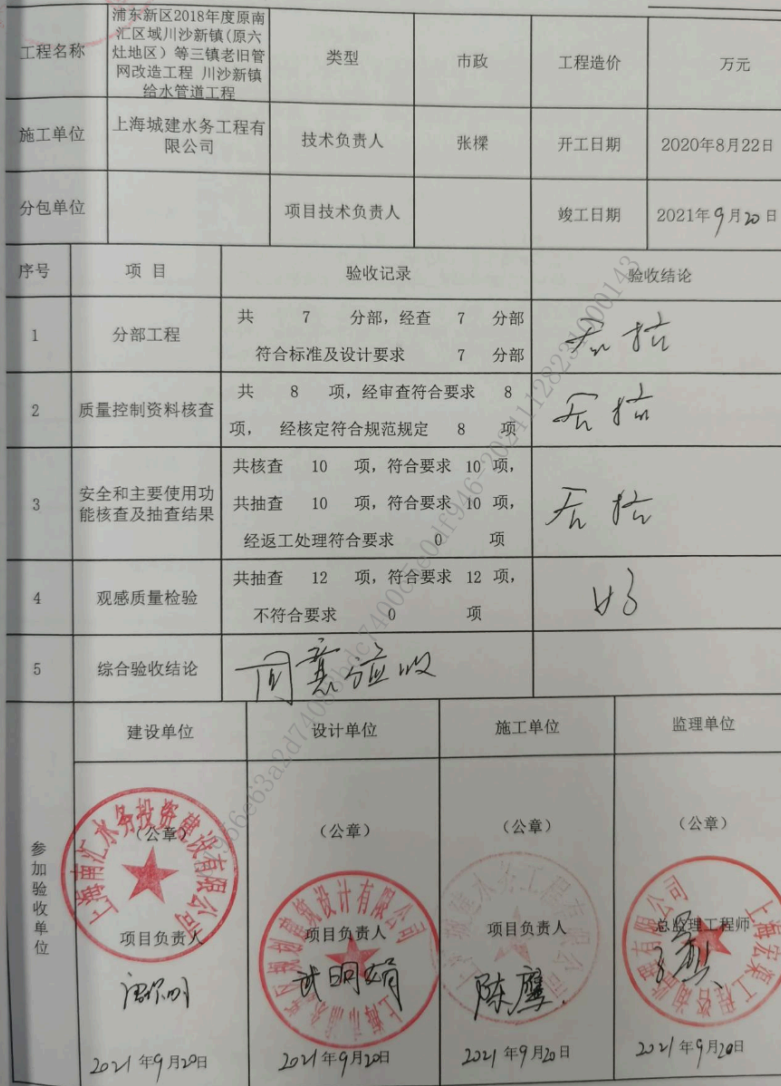 工程名称
浦东新区2018年度原南
汇区域川沙新镇(原六
灶地区)等三镇老旧管
网改造工程 川沙新镇
给水管道工程
类型
市政
工程造价
万元
施工单位
上海城建水务工程有
限公司
技术负责人
张樑
开工日期
2020年8月22日
分包单位
项目技术负责人
竣工日期
2021年9月20日
序号
项 目
验收记录
验收结论
1
分部工程
共 7 分部,经查 7 分部
符合标准及设计要求 7 分部
合格
2
质量控制资料核查
共 8 项,经审查符合要求 8
项, 经核定符合规范规定 8 项
合格
3
安全和主要使用功
能核查及抽查结果
共核查 10 项,符合要求 10 项,
共抽查 10 项,符合要求 10 项,
经返工处理符合要求 0 项
合格
4
观感质量检验
共抽查 12 项,符合要求 12 项,
不符合要求 0 项
好
5
综合验收结论
同意验收
参加验收单位
建设单位
设计单位
施工单位
监理单位
(公章)
(公章)
(公章)
(公章)
上海南汇水务投资建设有限公司
项目负责人
项目负责人
项目负责人
总监理工程师
陈鹰
2021年9月20日
2021年9月20日
2021年9月20日
2021年9月20日